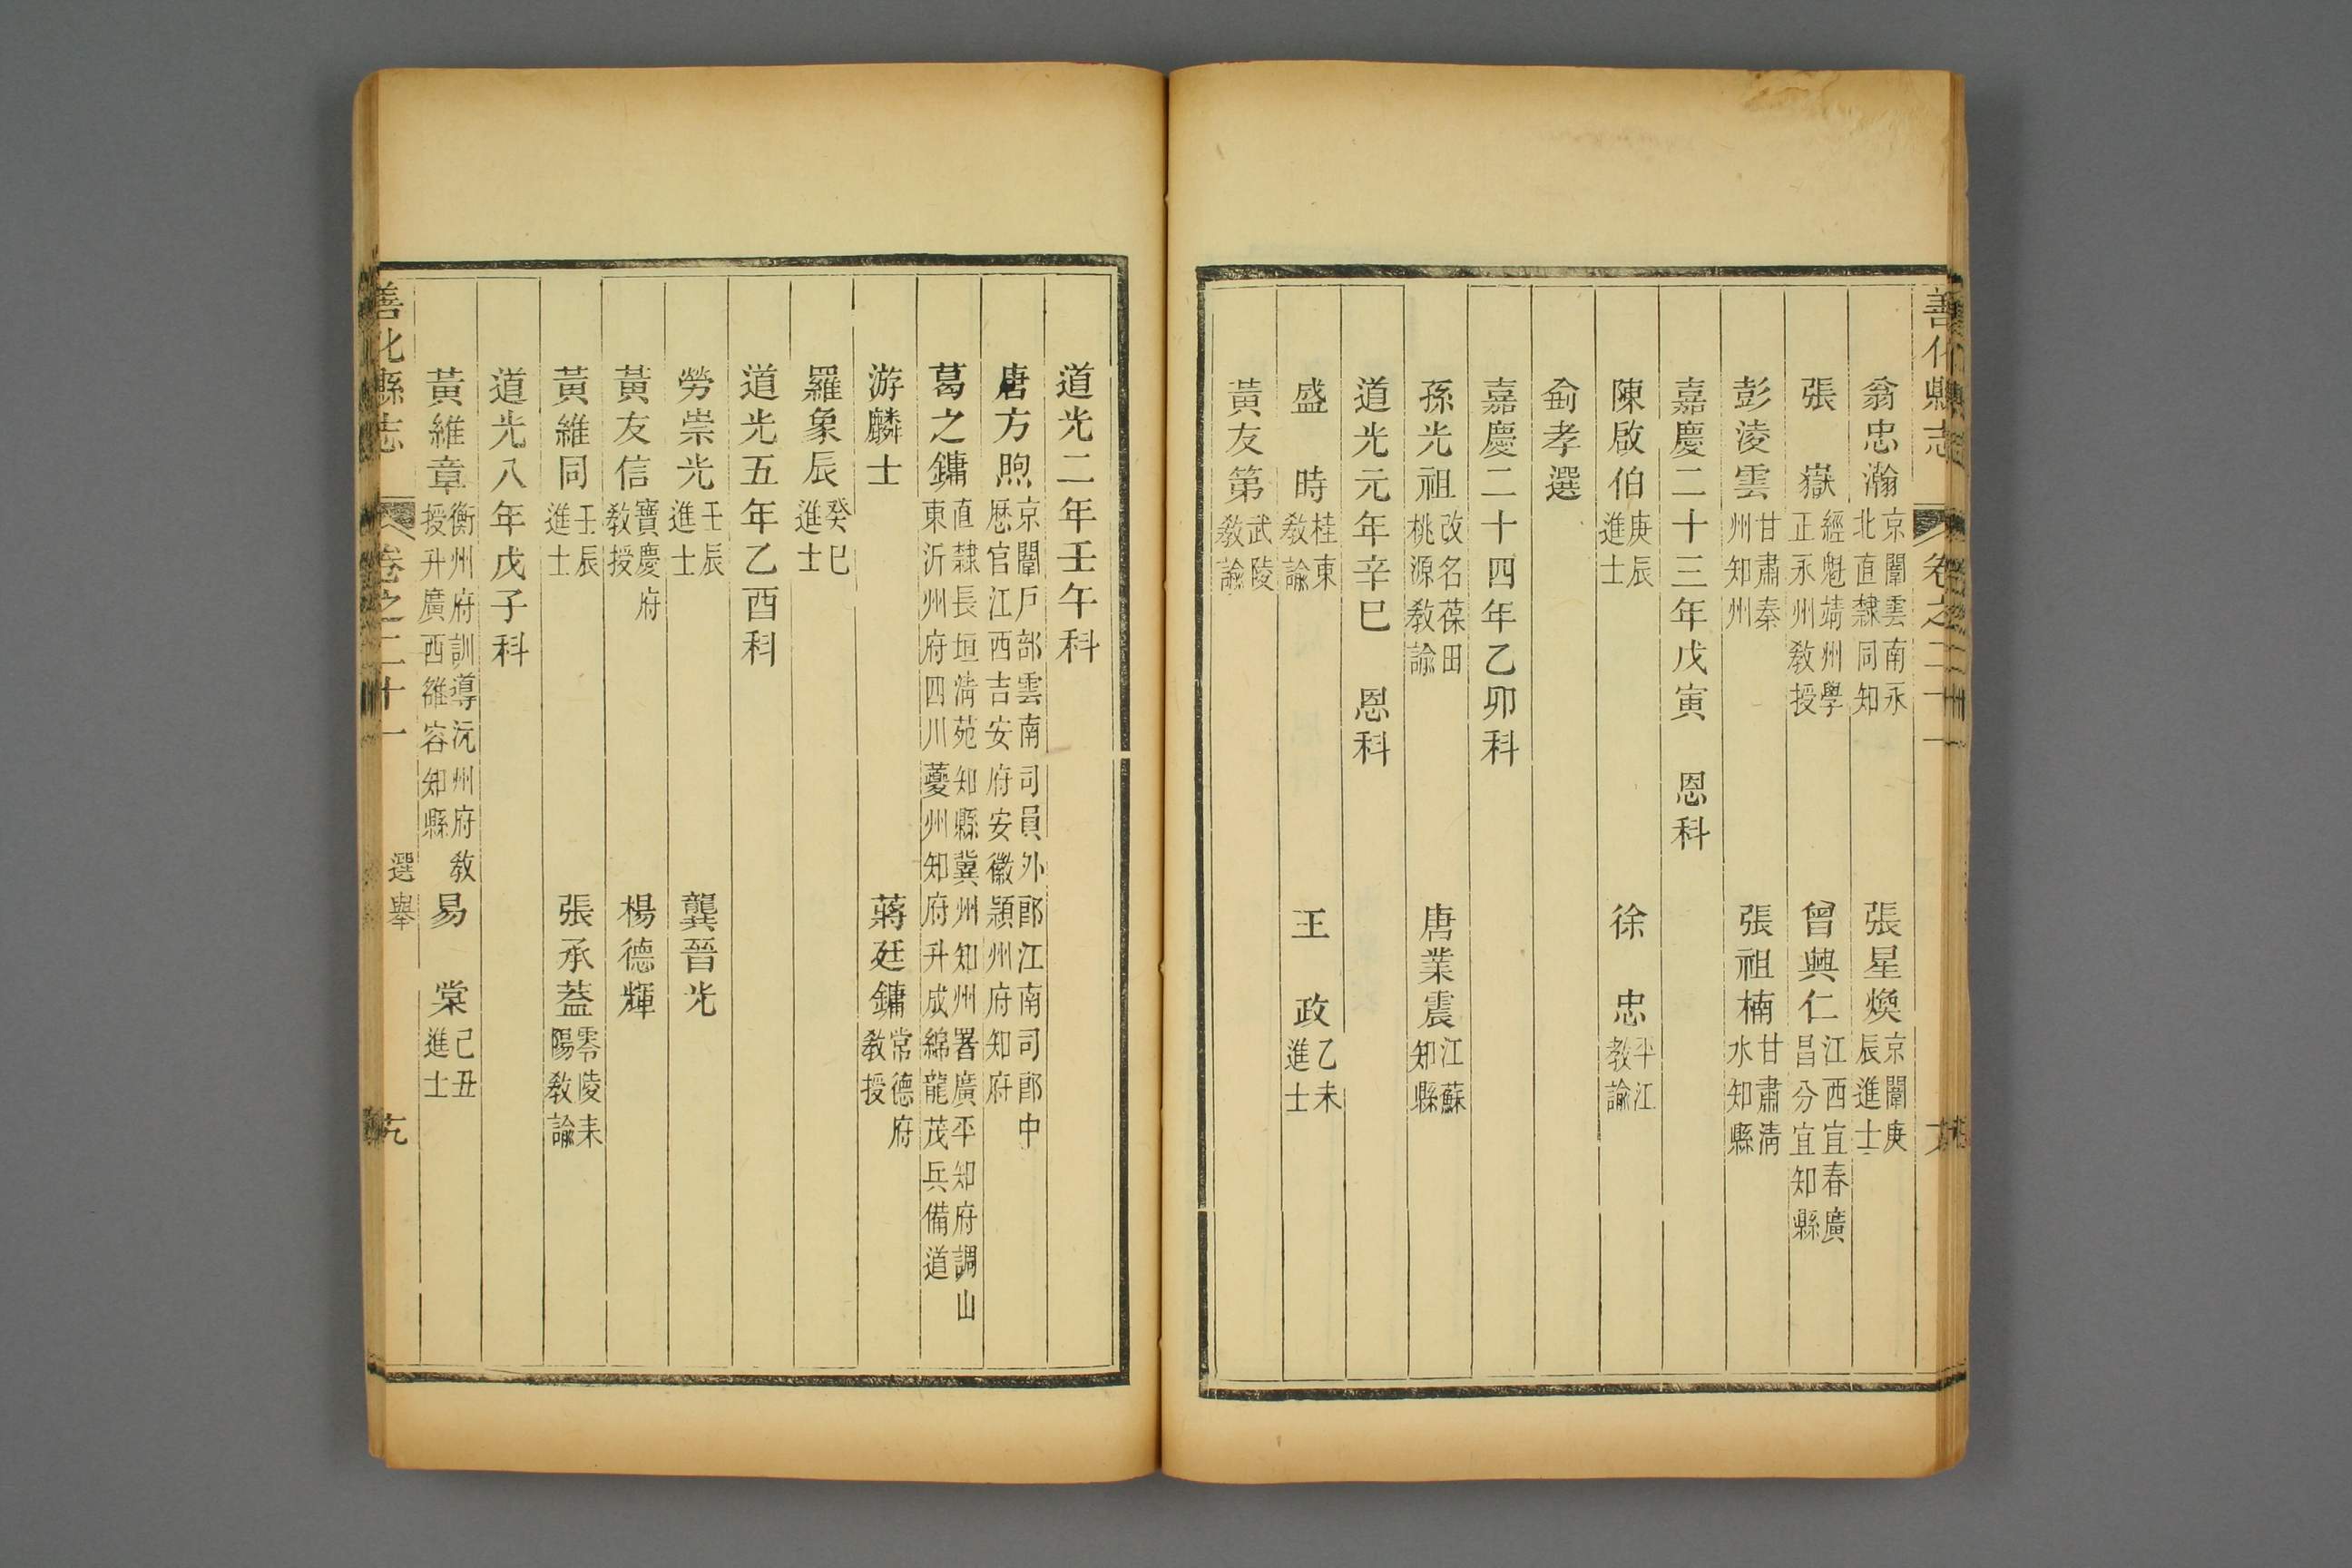 善化縣志 卷之二十一
翁忠瀚 京闈雲南永北直隸同知 張星煥 京闈庚辰進士
張嶽 經魁靖州學正永州教授 曾興仁 江西宜春廣昌分宜知縣
彭淩雲 甘肅秦州知州 張祖楠 甘肅清水知縣
嘉慶二十三年戊寅 恩科
陳啟伯 庚辰進士 徐忠 平江教諭
俞孝選
嘉慶二十四年乙卯科
孫光祖 改名葆田桃源教諭 唐業震 江蘇知縣
道光元年辛巳 恩科
盛時 桂東教諭 王政 乙未進士
黃友第 武陵教諭
道光二年壬午科
唐方煦 京闈戶部雲南司員外郎江南司郎中歷官江西吉安府安徽潁州府知府
葛之鏞 直隸長垣清苑知縣冀州知州署廣平知府調山東沂州府四川夔州知府升成綿龍茂兵備道
游麟士 蔣廷鏞 常德府教授
羅象辰 癸巳進士
道光五年乙酉科
勞崇光 壬辰進士 龔晉光
黃友信 寶慶府教授 楊德輝
黃維同 壬辰進士 張承蓋 零陵耒陽教諭
道光八年戊子科
黃維章 衡州府訓導沅州府教授升廣西雒容知縣 易棠 己丑進士
善化縣志 卷之二十一 選舉